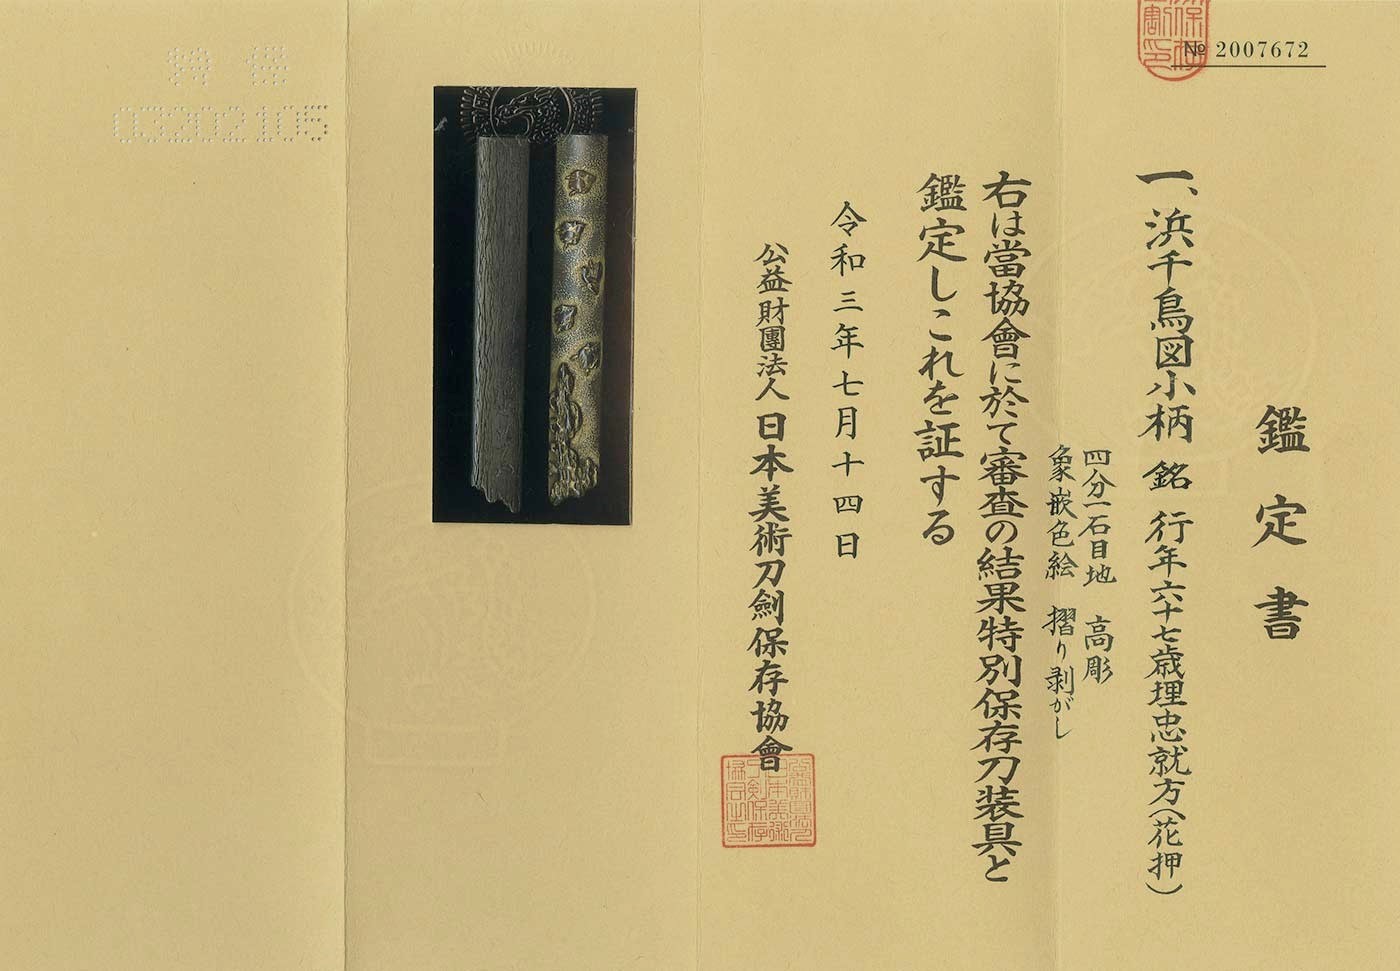 № 2007672
鑑定書
一、浜千鳥図小柄 銘 行年六十七歳埋忠就方(花押)
四分一石目地 高彫
象嵌色絵 摺り剥がし
右は當協會に於て審査の結果特別保存刀装具と
鑑定しこれを証する
令和三年七月十四日
公益財團法人 日本美術刀劍保存協會
特保
03202105